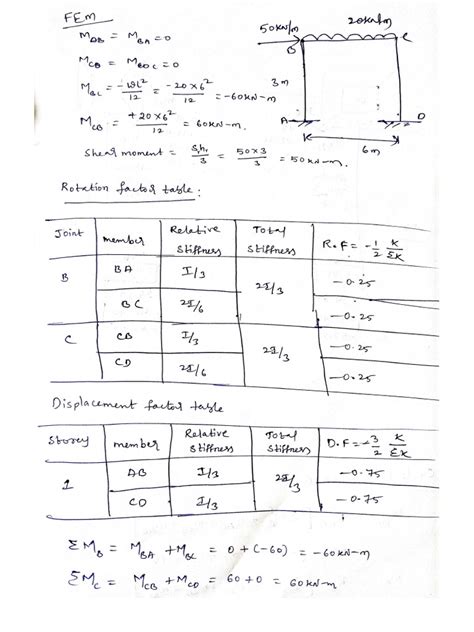 FEM
M_AB = M_BA = 0
M_CD = M_DC = 0
M_BC = -wl²/12 = -20×6²/12 = -60kN-m
M_CB = +20×6²/12 = 60kN-m.
Shear moment = S.h./3 = 50×3/3 = 50kN-m.
50kN/m
20kN/m
B
C
3m
A
D
6m
Rotation factor table:
Joint member Relative stiffness Total stiffness R.F = -1/2 K/ΣK
B BA I/3 2I/3 -0.25
BC 2I/6 -0.25
C CB I/3 2I/3 -0.25
CD 2I/6 -0.25
Displacement factor table
Storey member Relative stiffness Total stiffness D.F = -3/2 K/ΣK
1 AB I/3 2I/3 -0.75
CD I/3 -0.75
ΣM_B = M_BA + M_BC = 0+(-60) = -60kN-m
ΣM_C = M_CB + M_CD = 60+0 = 60kN-m